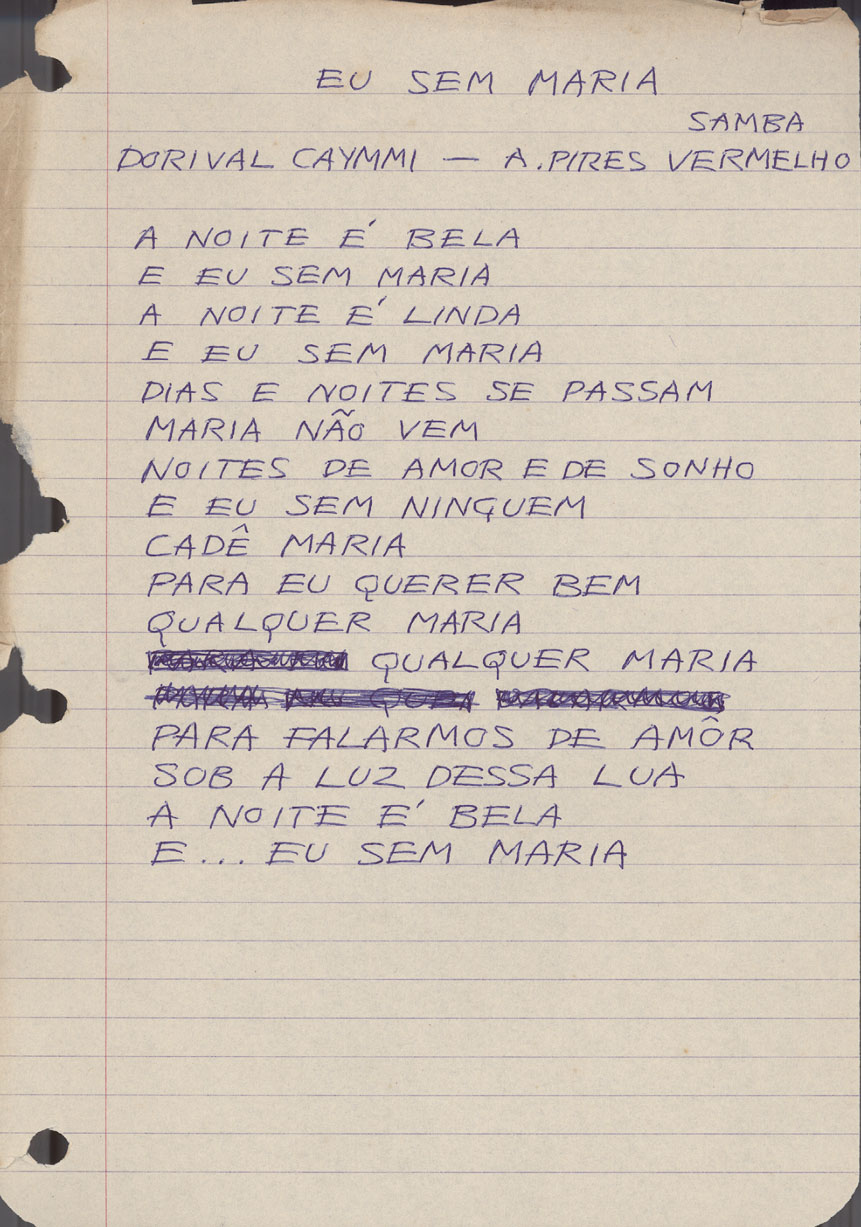 EU SEM MARIA
SAMBA
DORIVAL CAYMMI — A. PIRES VERMELHO
A NOITE É BELA
E EU SEM MARIA
A NOITE É LINDA
E EU SEM MARIA
DIAS E NOITES SE PASSAM
MARIA NÃO VEM
NOITES DE AMOR E DE SONHO
E EU SEM NINGUEM
CADÊ MARIA
PARA EU QUERER BEM
QUALQUER MARIA
QUALQUER MARIA
PARA FALARMOS DE AMÔR
SOB A LUZ DESSA LUA
A NOITE É BELA
E... EU SEM MARIA